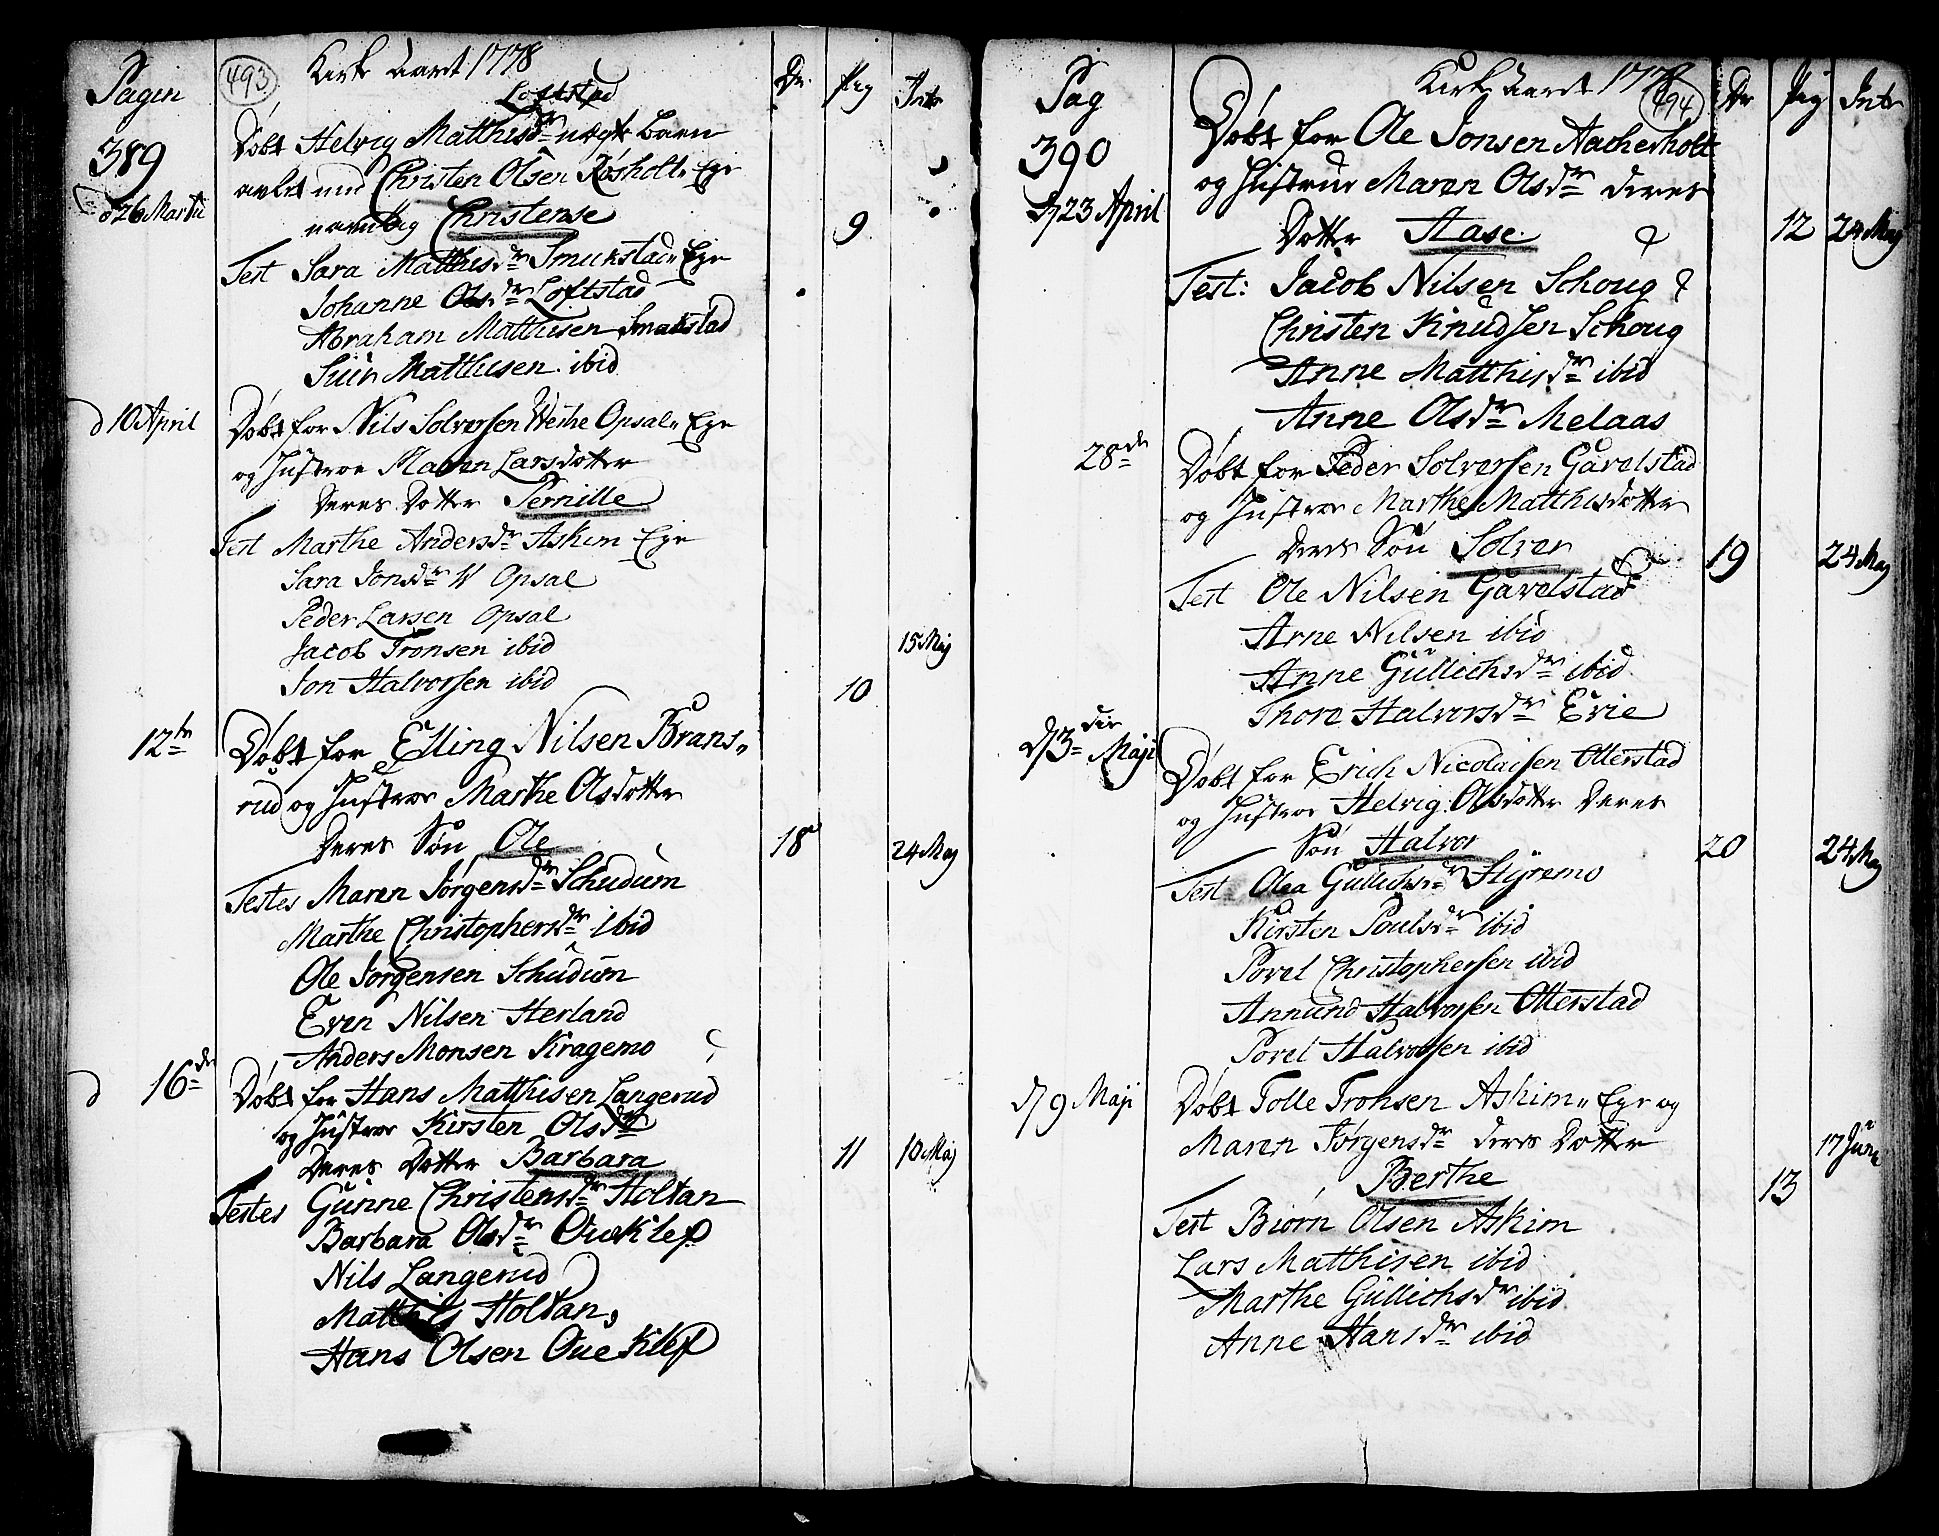 Pagin
493
Kirke Aaret 1778
Dr. Pig Intr
389
Loftstad
Døbt Helvig Matthisdr uægte Barn
avlet med Christen Olsen Røsholt Ege
d 26 Martii
navnlig Christense
9
Test Sara Matthisdr Smukstad Ege
Johanne Olsdr Loftstad
Abraham Matthisen Smukstad
Siur Matthisen ibid
d 10 April
Døbt for Nils Solversen Weshe Opsal Ege
og Hustroe Maren Larsdotter
Deres Dotter Pernille
Test Marthe Andersdr Askim Ege
Sara Jonsdr W Opsal
Peder Larsen Opsal
Jacob Tronsen ibid
15 Maj
Jon Halvorsen ibid
10
12te
Døbt for Elling Nilsen Brans„
rud og Hustroe Marthe Olsdotter
Deres Søn Ole
18
24 Maj
Testes Maren Jørgensdr Schudum
Marthe Christophersdr ibid
Ole Jørgensen Schudum
Even Nilsen Herland
Anders Monsen Kragemo
d 16de
Døbt for Hans Matthisen Langerud
og Hustroe Kirsten Olsdr
Deres Dotter Barbara
11
10 Maj
Testes Gunne Christensdr Holtan
Barbara Olsdr Oueklef
Nils Langerud
Matthis Holtan,
Hans Olsen Oueklef
Pag
Kirke Aaret 1778
494
Dr Pig Intr
390
Døbt for Ole Jonsen Aacherholt
og Hustrue Maren Olsdr deres
d 23 April
Dotter Aase
12
24 Maj
Test: Jacob Nilsen Schoug
Christen Knudsen Schoug
Anne Matthisdr ibid
Anne Olsdr Melaas
28de
Døbt for Peder Solversen Gavelstad
og Hustroe Marthe Matthisdotter
Deres Søn Solver
19
24 Maj
Test Ole Nilsen Gavelstad
Arne Nilsen ibid
Anne Gullichsdr ibid
Thore Halvorsdr Evie
d 3die Maji
Døbt for Erich Nicolaisen Otterstad
og Hustroe Helvig Olsdotter Deres
Søn Halvor
20
24 Maj
Test Olea Gullichsdr Styremo
Kirsten Poulsdr ibid
Povel Christophersen ibid
Annund Halvorsen Otterstad
Povel Halvorsen ibid
d 9 Maji
Døbt Tolle Tronsen Askim„ Ege og
Maren Jørgensdr deres Dotter
17 Juni
Berthe
13
Test Biørn Olsen Askim
Lars Matthisen ibid
Marthe Gullichsdr ibid
Anne Hansdr ibid